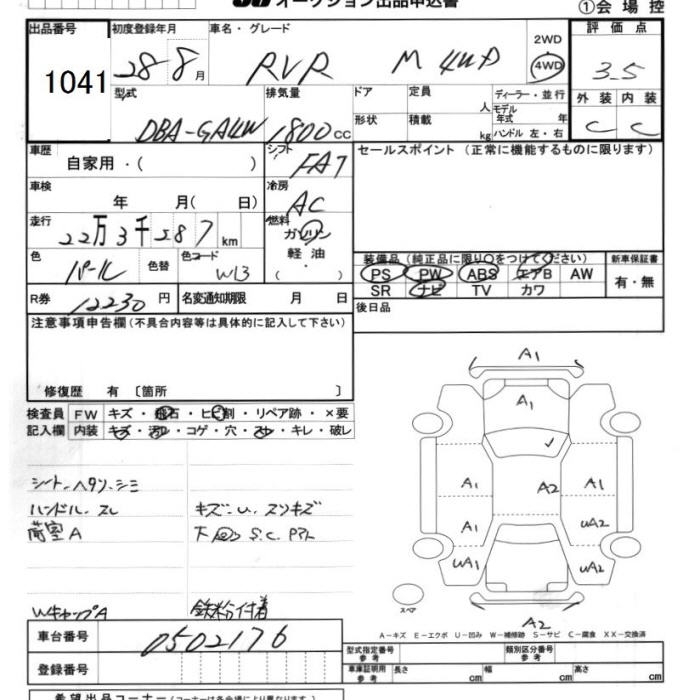 オークション出品申込書
①会場控
出品番号 初度登録年月 車名・グレード 2WD 評価点
1041 28-8月 RVR M 4WD 4WD 3.5
型式 排気量 ドア 定員 人 ディーラー・並行 外装 内装
DBA-GA4W 1800cc 形状 積載 kg モデル年式 年 ハンドル 左・右 C C
車歴 自家用・( ) シフト FAT セールスポイント(正常に機能するものに限ります)
車検 年 月( 日) 冷房 AC
走行 22万3千287km 燃料 ガソリン
軽油・
( )
色 パール 色替 色コード W13
装備品(純正品に限り○をつけてください) 新車保証書
PS PW ABS エアB AW 有・無
SR ナビ TV カワ
R券 12230円 名変通知期限 月 日 後日品
注意事項申告欄(不具合内容等は具体的に記入して下さい)
修復歴 有〔箇所 〕
検査員 FW キズ・飛石・ヒビ割・リペア跡・×要
記入欄 内装 キズ・汚れ・コゲ・穴・スレ・キレ・破レ
シート.ヘタリ.シミ
ハンドル.スレ キズ.U.スリキズ
荷室A S.C.
WキャップA 鉄粉付着
A1
A1
A2
A1 A1
A1 UA2
UA1 UA2
スペア
A2
A-キズ E-エクボ U-凹み W-補修跡 S-サビ C-腐食 XX-交換済
車台番号 0502176
型式指定番号 参考 類別区分番号 参考
登録番号 車庫証明用 参考 長さ cm 幅 cm 高さ cm
希望出品コーナー(コーナーは各会場により異なります)